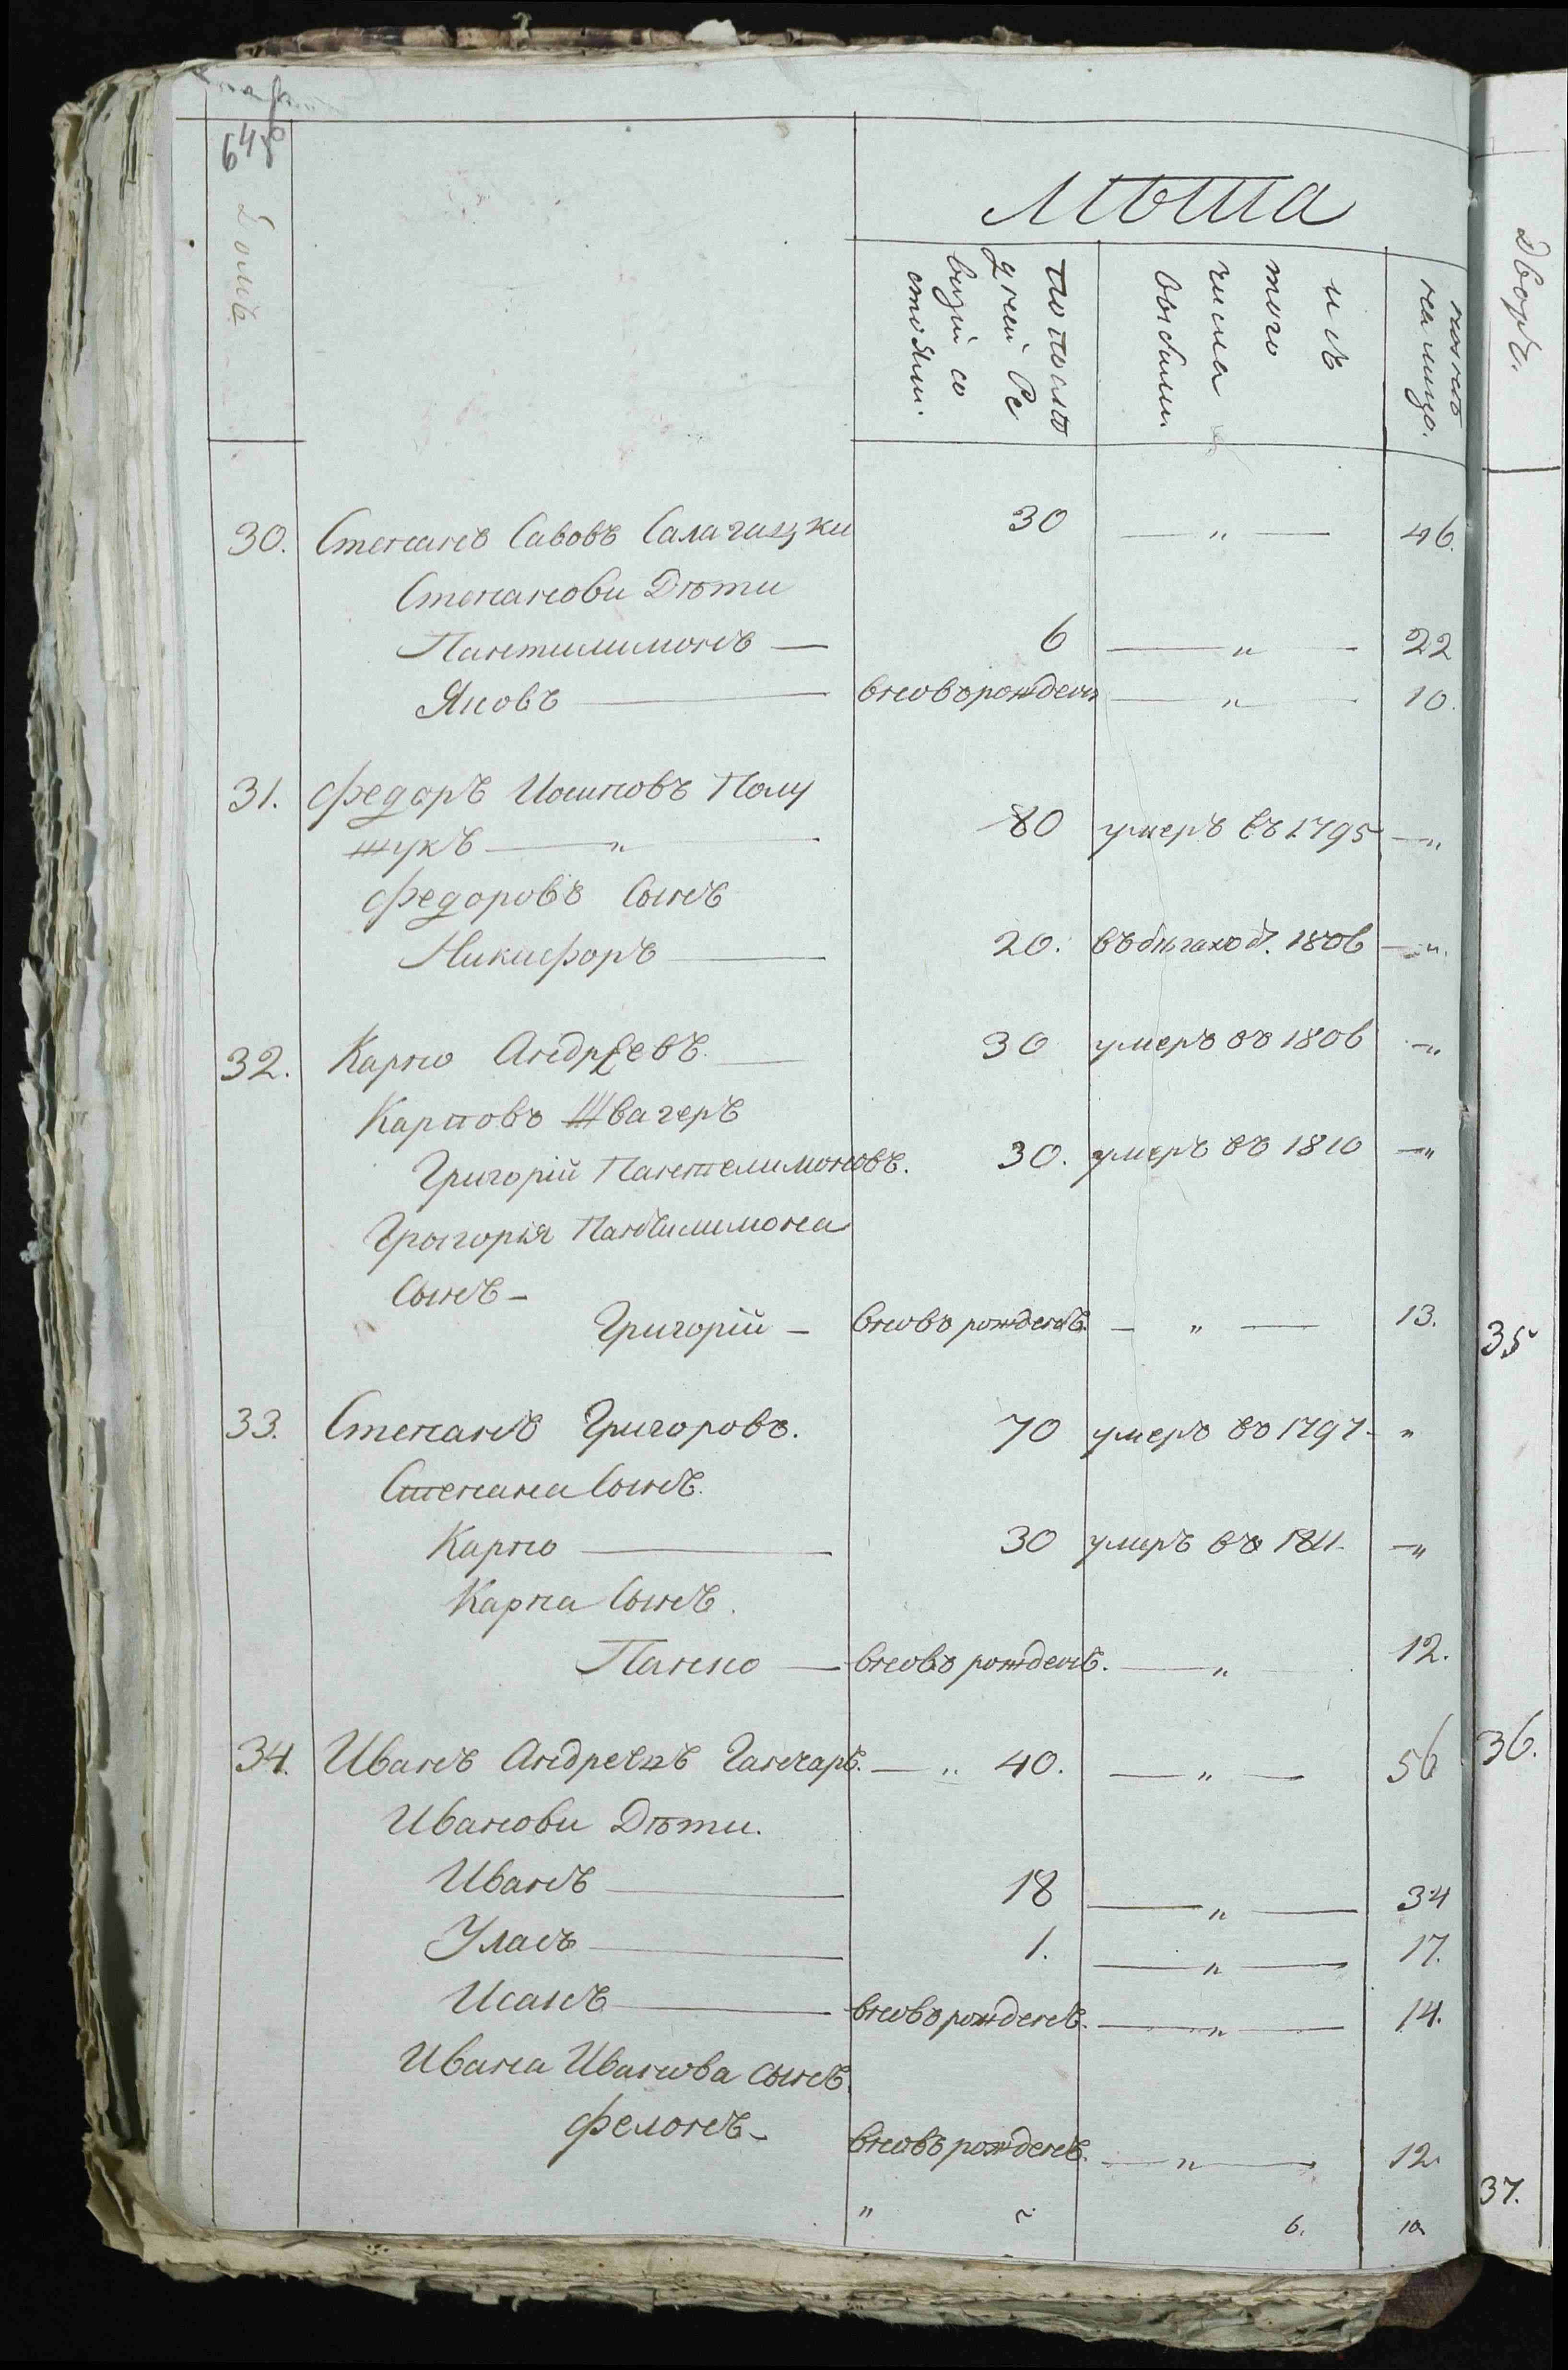 648
Домъ
Лѣта
по посл
едней Ре
визіи со
стояли.
изъ
того
числа
выбыли.
нынѣ
на лицо.
Дворъ.
30. Степанъ Савовъ Салагацки 30 — " — 46.
Степанови Дѣти
Пантилимонъ — 6 — " — 22
Яковъ — вновъ рожденъ — " — 10.
31. Федоръ Иосиповъ Полу
щукъ — " — 80 умеръ въ 1795 — "
Федоровъ Сынъ
Никифоръ — 20. въ бѣгахъ с. 1806 — ".
32. Карпо Андреевъ. — 30 умеръ въ 1806 — "
Карповъ Швагеръ
Григорій Пантелимоновъ. 30. умеръ въ 1810 — "
Григорія Пантилимона
Сынъ —
Григорій — вновъ рожденъ. — " — 13.
33. Степанъ Григоровъ. 70 умеръ въ 1797 - "
Степана Сынъ.
Карпо — 30 умеръ въ 1811. — "
Карпа Сынъ.
Панко — вновъ рожденъ. — " 12.
34. Иванъ Андреевъ Ганчаръ. — " 40. — " — 56
Иванови Дѣти.
Иванъ — 18 — " — 34
Уласъ — 1. — " — 17.
Исакъ — вновъ рожденъ. — " — 14.
Ивана Иванова сынъ.
Филонъ — вновъ рожденъ. — " — 12.
" 6. 10
35
36.
37.